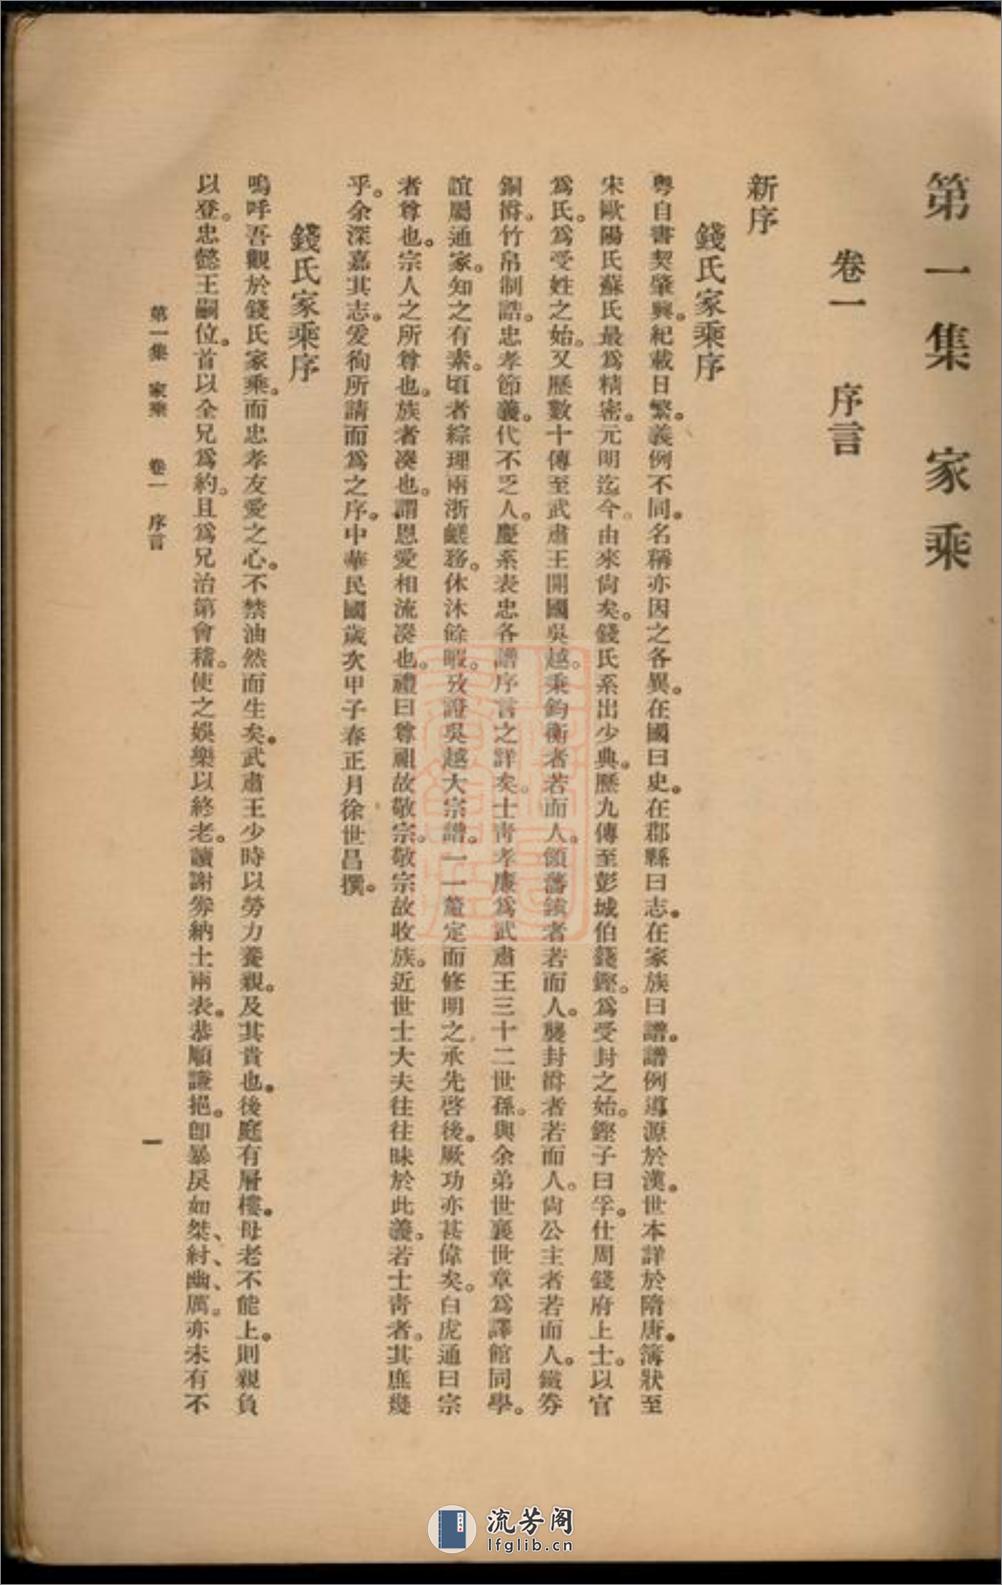 第一集　家乘
卷一　序言
新序
錢氏家乘序
粵自書契肇興。紀載日繁。義例不同。名稱亦因之各異。在國曰史。在郡縣曰志。在家族曰譜。譜例導源於漢。世本詳於隋唐。簿狀至
宋歐陽氏蘇氏最爲精密。元明迄今。由來尙矣。錢氏系出少典。歷九傳至彭城伯籛鏗。爲受封之始。鏗子曰孚。仕周錢府上士。以官
爲氏。爲受姓之始。又歷數十傳至武肅王開國吳越。秉鈞衡者若而人。領藩鎮者若而人。襲封爵者若而人。尙公主者若而人。鐵券
銅爵。竹帛制誥。忠孝節義。代不乏人。慶系表忠各譜序言之詳矣。士靑孝廉爲武肅王三十二世孫。與余弟世襄世章爲譯館同學。
誼屬通家。知之有素。頃者綜理兩浙鹺務。休沐餘暇。攷證吳越大宗譜。一一釐定而修明之。承先啓後。厥功亦甚偉矣。白虎通曰宗
者尊也。宗人之所尊也。族者湊也。謂恩愛相流湊也。禮曰尊祖故敬宗。敬宗故收族。近世士大夫往往昧於此義。若士靑者。其庶幾
乎。余深嘉其志。爰徇所請而爲之序。中華民國歲次甲子春正月徐世昌撰。
錢氏家乘序
嗚呼吾觀於錢氏家乘。而忠孝友愛之心。不禁油然而生矣。武肅王少時以勞力養親。及其貴也。後庭有層樓。母老不能上。則親負
以登。忠懿王嗣位。首以全兄爲約。且爲兄治第會稽。使之娛樂以終老。讀謝券納土兩表。恭順謙挹。卽暴戾如桀、紂、幽、厲。亦未有不
第一集　家乘　卷一　序言
一
流芳阁
lfglib.cn